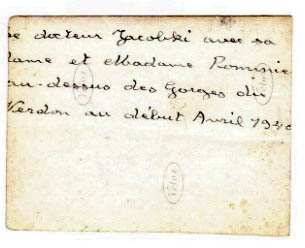 le docteur Jacobski avec sa
dame et Madame Rominie
au-dessus des Gorges du
Verdon au début Avril 1940
Velox
Velox
Velox